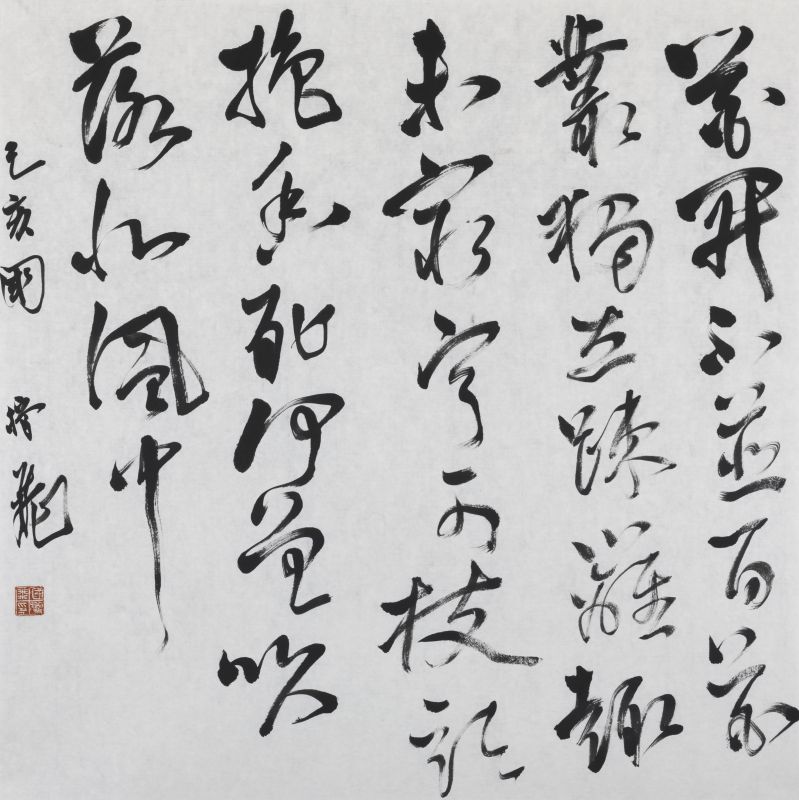 花開不並百花
叢獨立踈籬趣
未窮寧可枝頭
抱香死何曾吹
落北風中
己亥